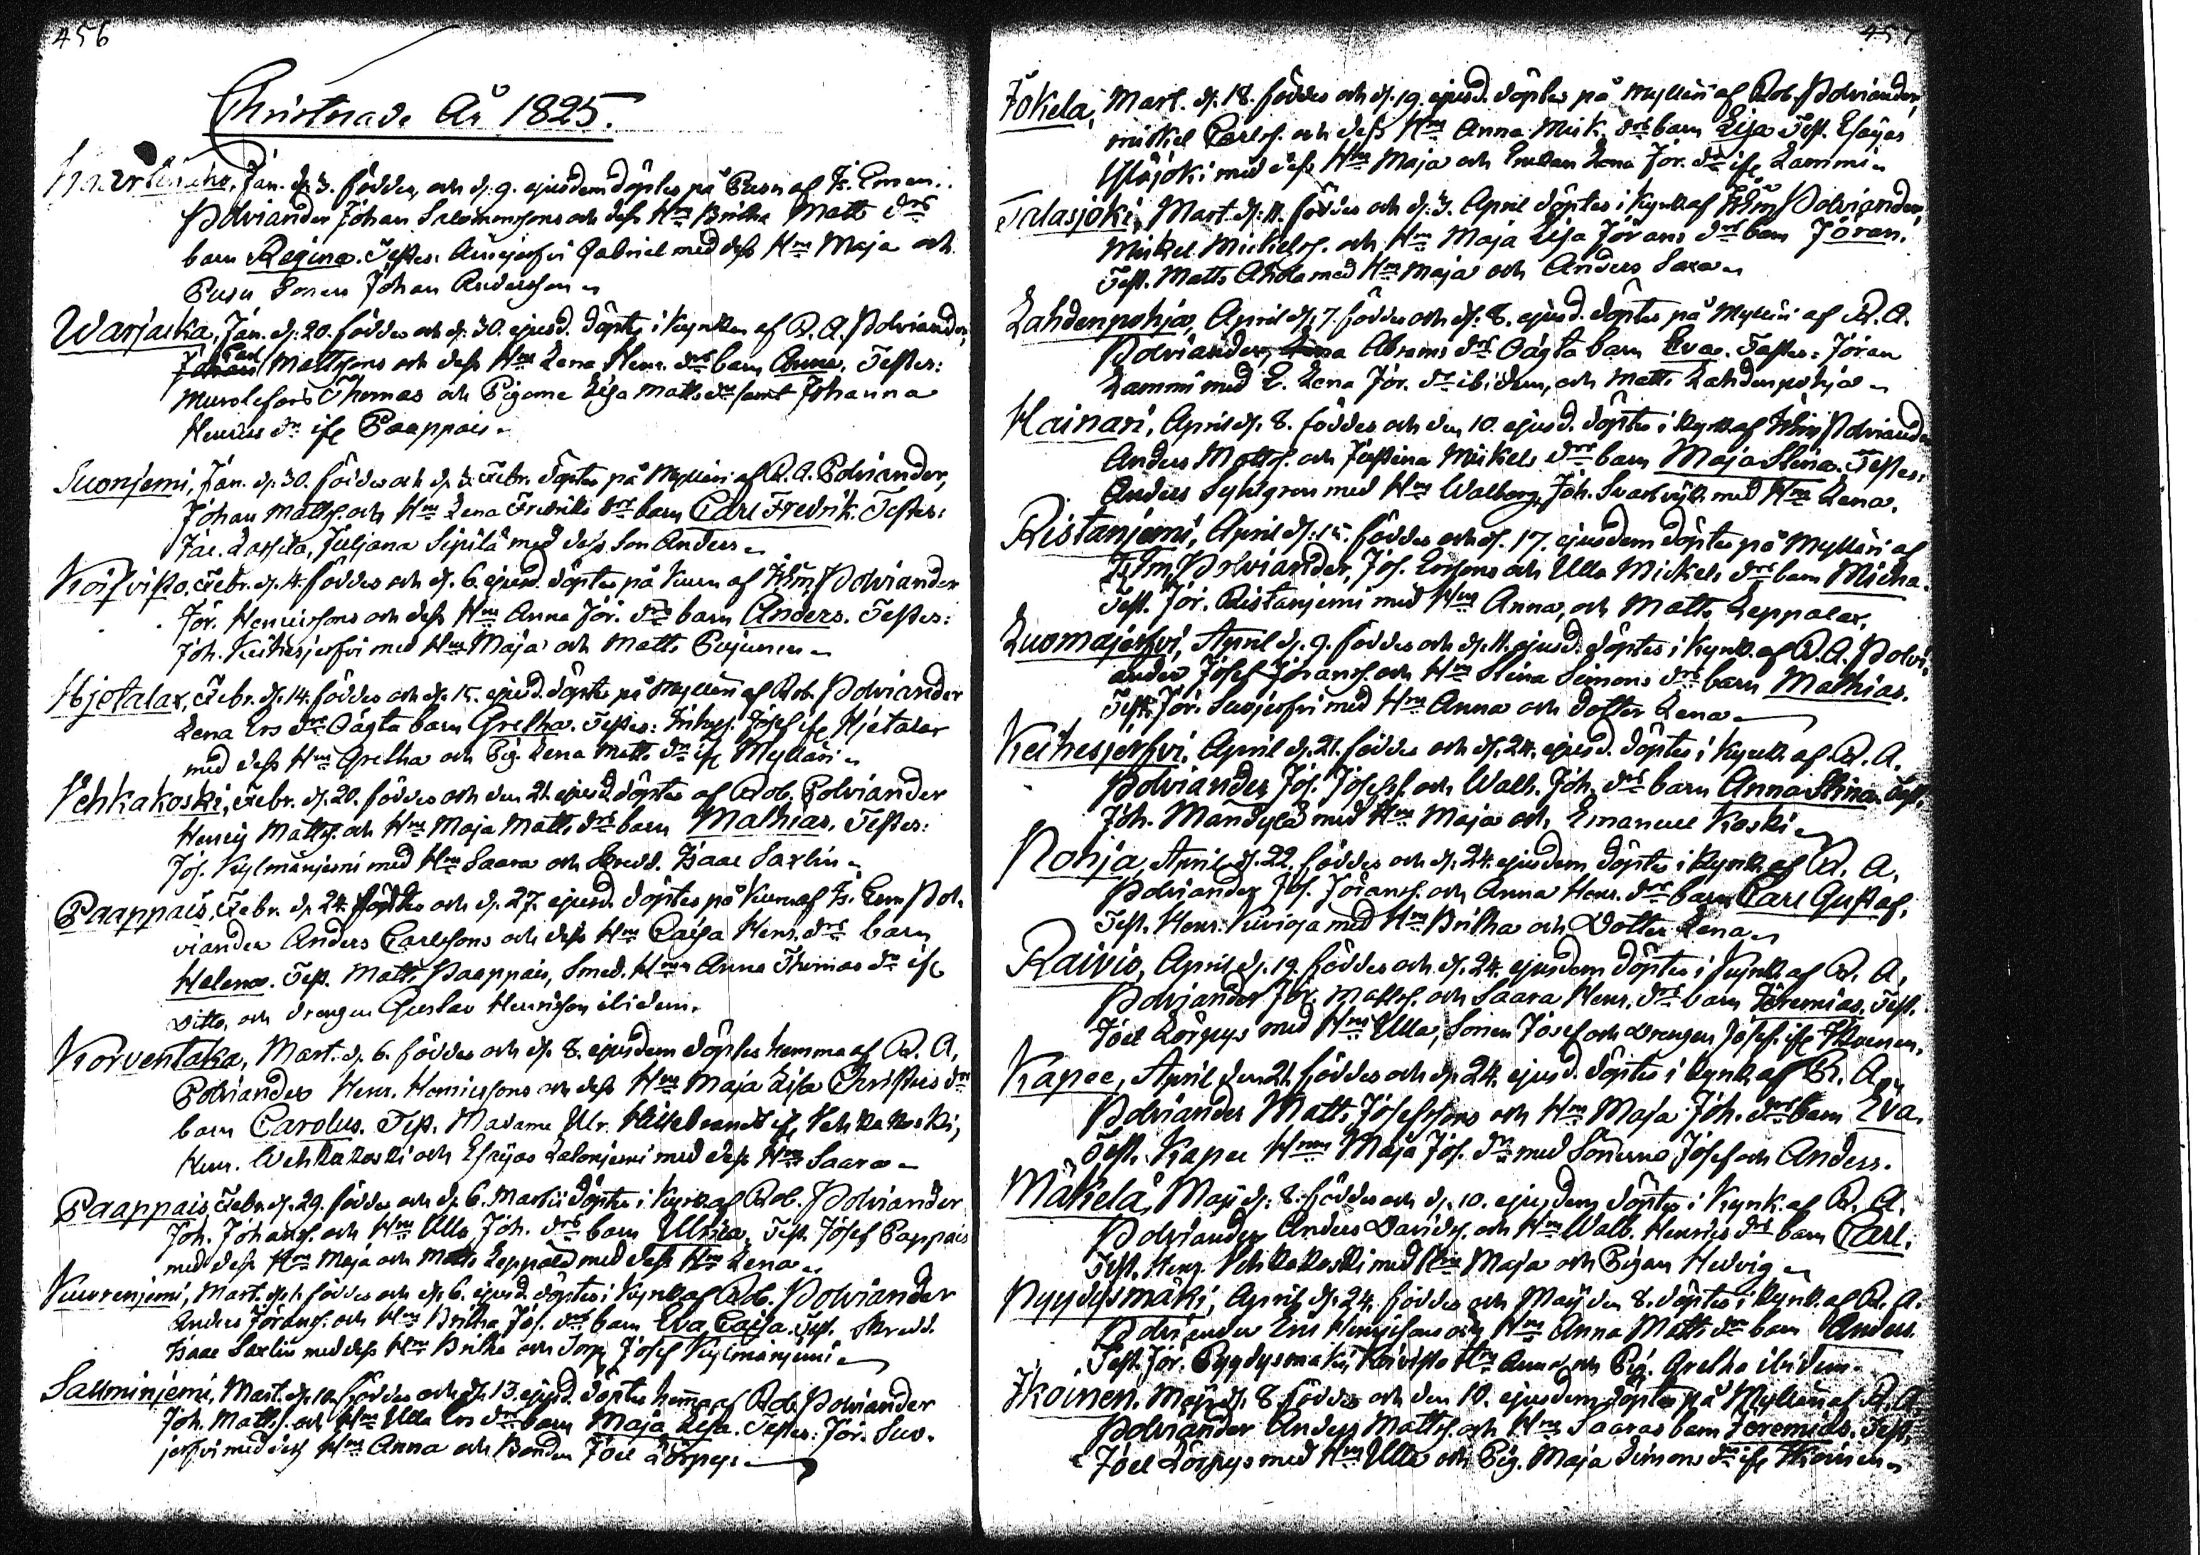 456
Christnade År 1825.
Jan. d. 3. föddes, och d. 9. ejusdem döptes på Pusu af
Polviander Johan Salomonssons och dess Hu Britha Matts drs
barn Regina. Testes: Gabriel med dess Hu Maja och
Pusu Sonen Johan Andersson
Warjacka, Jan. d. 20. föddes och d. 30. ejusd. döptes i Kyrkan af R. A. Polviander,
Carl
Johans Mattssons och dess Hu Lena Henr. drs barn Anna. Testes:
Thomas och Pigorne Lisa Matts dr samt Johanna
Henrics dr ifr Paappais
Suonjemi, Jan. d. 30. föddes och d. 3. Febr. döptes på Mylläri af R. A. Polviander,
Johan Mattss. och Hu Lena Fredriks drs barn Carl Fredrik. Testes:
Juljana Sipilä med dess Son Anders
Koifvisto, Febr. d. 4. föddes och d. 6. ejusd. döptes på Kuru af Polviander
Jör. Henricssons och dess Hu Anna Jör. drs barn Anders. Testes:
Joh. Keihesjerfvi med Hu Maja och Matts Pujunen
Hjetalax, Febr. d. 14. föddes och d. 15. ejusd. döptes på Mylläri af Rob. Polviander
Lena Ers drs Oägta barn Gretha. Testes: Josef ifr Hjetalax
med dess Hu Gretha och Pig. Lena Matts dr ifr Mylläri
Vehkakoski, Febr. d. 20. föddes och den 21. ejusd. döptes af Rob. Polviander
Henric Mattss. och Hu Maja Matts drs barn Mathias. Testes:
Jos. Kylmänjemi med Hu Saara och Skredd. Isaac Saxlin
Paappais, Febr. d. 24. föddes och d. 27. ejusd. döptes på Kuru af Pol-
viander Anders Carlssons och dess Hu Caisa Henr. drs barn
Helena. Test. Matts Paappais, Smed. Hu Anna Thomas dr ifr
Ditto, och drengen Gustav Henricsson ibidem.
Korventaka, Mart. d. 6. föddes och d. 8. ejusdem döptes hemma af R. A.
Polviander Henr. Henricssons och dess Hu Maja Lisa Christers drs
barn Carolus. Test. Madame Ulr. Hillebrandt ifr Vehkakoski,
Henr. Wehkakoski och Esaijas Lalonjemi med dess Hu Saara
Paappais, Febr. d. 29. föddes och d. 6. Martii döptes i Kyrk. af Rob. Polviander
Joh. Johanss. och Hu Ulla Joh. drs barn Ulrica. Test. Josef Pappais
med dess Hu Maja och Matts Leppälä med dess Hu Lena
Kuurenjemi, Mart. d. 1. föddes och d. 6. ejusd. döptes i Kyrk. af Rob. Polviander
Anders Jöranss. och Hu Britha Jos. drs barn Eva Caisa. Test. Skredd.
Isaac Saxlin med dess Hu Britha och Torp. Josef Kylmänjemi
Salminjemi, Mart. d. 10. föddes och d. 13. ejusd. döptes hemma af Rob. Polviander
Joh. Mattss. och Hu Ulla Ers drs barn Maja Lisa. Testes: Jör. Suo-
jerfvi med dess Hu Anna och Bonden Joel Lörppys
457
Jokela, Mart. d. 18. föddes och d. 19. ejusd. döptes på Mylläri af Rob. Polviander,
Mickel Carlss. och dess Hu Anna Mick. drs barn Lisa. Test. Esaijas
Ylöjöki med dess Hu Maja och Enckan Lena Jör. dr ifr Lammi
Talasjoki, Mart. d. 11. föddes och d. 3. April döptes i Kyrk. af Polviander,
Mickel Mickelss. och Hu Maja Lisa Jörans drs barn Jöran.
Test. Matts Ahola med Hu Maja och Anders Saxa
Lahdenpohja, April d. 7. föddes och d. 8. ejusd. döptes på Mylläri af R. A.
Polviander, Abrams drs Oägta barn Eva. Testes: Jöran
Lammi med E. Lena Jör. dr ibidem, och Matts Lahdenpohja
Hainari, April d. 8. föddes och den 10. ejusd. döptes i Kyrk. af Polviander
Anders Mattss. och Justina Mickels drs barn Maja Stina. Testes.
Anders Syhlgren med Hu Walborg, Joh. med Hu Lena.
Ristanjemi, April d. 15. föddes och d. 17. ejusdem döptes på Mylläri af
Polviander, Jos. Erssons och Ulla Mickels drs barn Micha.
Test. Jör. Ristanjemi med Hu Anna, och Matts Leppalax.
Luomajerfvi, April d. 9. föddes och d. 11. ejusd. döptes i Kyrk. af R. A. Polvi-
ander Josef Jöranss. och Hu Stina Simons drs barn Mathias.
Test. Jör. Suojerfvi med Hu Anna och dotter Lena
Keihesjerfvi, April d. 21. föddes och d. 24. ejusd. döptes i Kyrk. af R. A.
Polviander Jos. Josefss. och Walb. Joh. drs barn Anna Stina. Test.
Joh. Mändylä med Hu Maja och Emanuel Koski
Pohja, April d. 22. föddes och d. 24. ejusdem döptes i Kyrk. af R. A.
Polviander Jos. Jöranss. och Anna Henr. drs barn Carl Gustaf.
Test. Henr. Kivioja med Hu Britha och Dotter Lena
Raivio, April d. 19. föddes och d. 24. ejusdem döptes i Kyrk. af R. A.
Polviander Jör. Mattss. och Saara Henr. drs barn Jeremias. Test.
Joel Lörppys med Hu Ulla, Sonen Josef och Drengen Josef ifr Ikoinen.
Kapee, April den 21. föddes och d. 24. ejusd. döptes i Kyrk. af R. A.
Polviander Matts Josefssons och Hu Maja Joh. drs barn Eva.
Test. Kapee Hu Maja Jos. dr med Sönerne Josef och Anders.
Mäkelä, Maij d. 8. föddes och d. 10. ejusdem döptes i Kyrk. af R. A.
Polviander Anders Davidss. och Hu Walb. Henrics drs barn Carl.
Test. Henr. Vehkakoski med Hu Maja och Pigan Hedvig
Pyydysmäki, April d. 24. föddes och Maij den 8. döptes i Kyrk. af R. A.
Polviander Eric Henricssons och Hu Anna Matts drs barn Anders.
Test. Jör. Pyydysmäki, Koivisto Hu Anna och Pig. Gretha ibidem
Ikoinen. Maij d. 8. föddes och den 10. ejusdem döptes på Mylläri af R. A.
Polviander Anders Mattss. och Hu Saaras barn Jeremias. Test.
Joel Lörppys med Hu Ulla och Pig. Maja Simons dr ifr Ikoinen